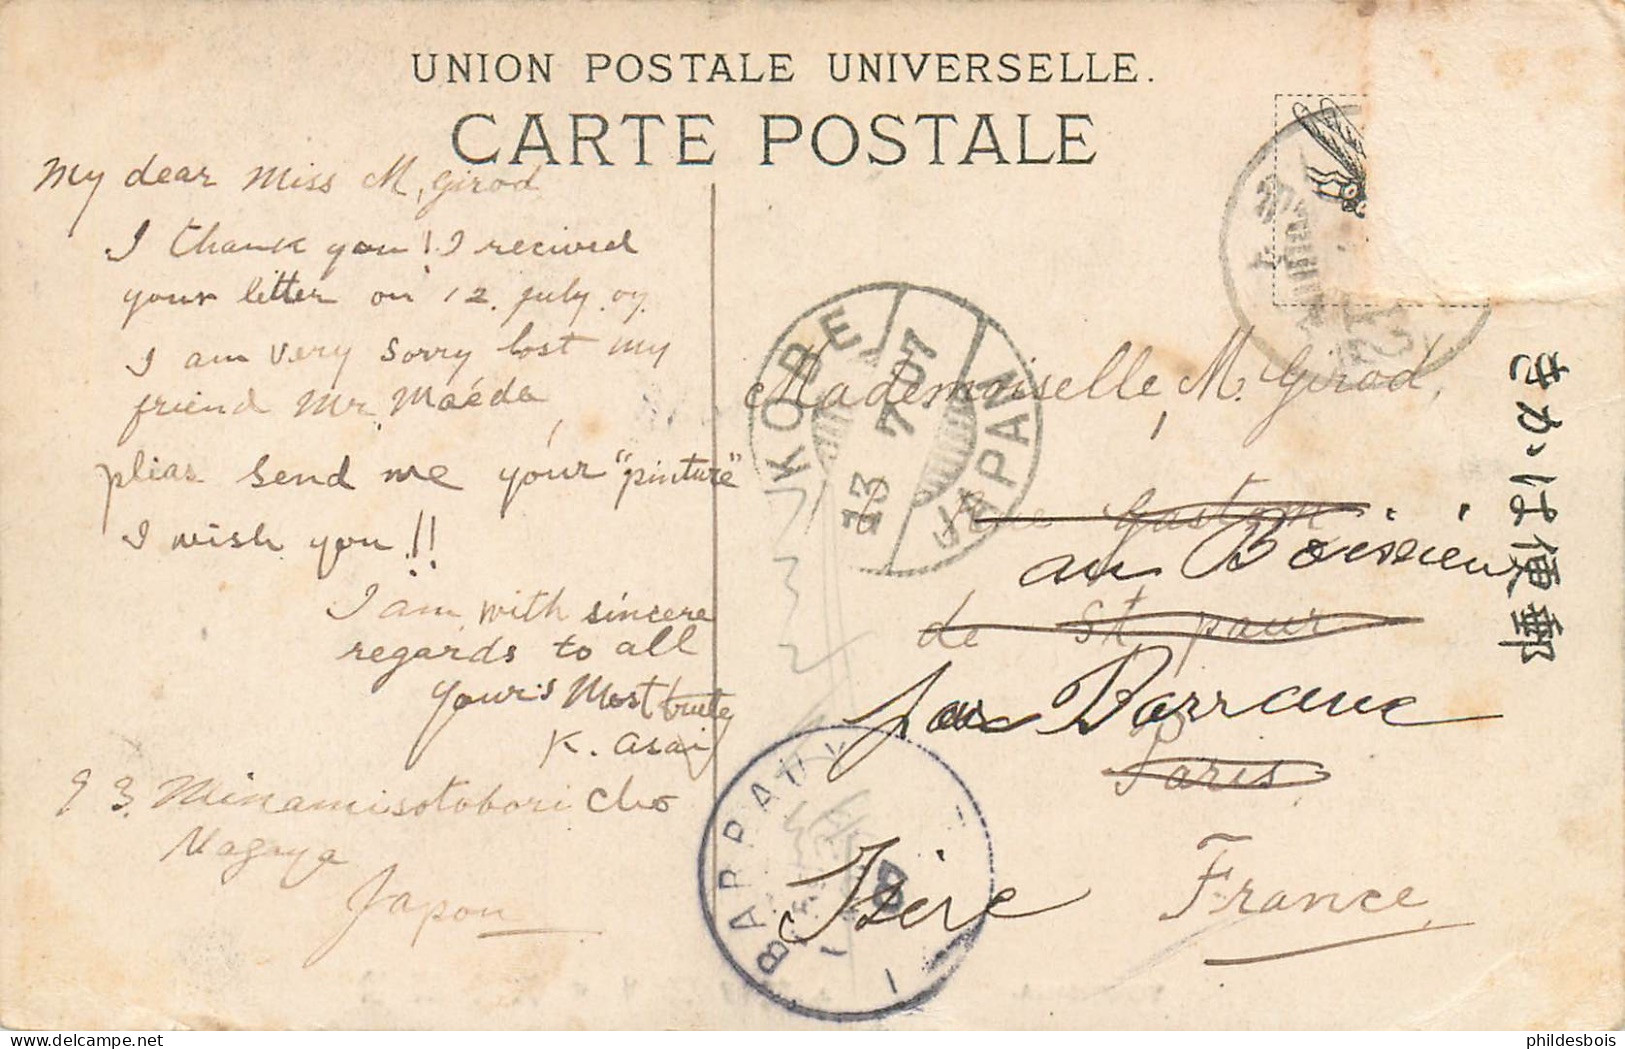 UNION POSTALE UNIVERSELLE.
CARTE POSTALE
My dear Miss M. Girod
I thank you! I recived
your letter on 12. July. 07.
I am very sorry lost my
friend Mr. Maéda,
plias send me your "pinture"
I wish you!!
I am with sincere
regards to all
your's Most truely
K. Asai
93. Minamisotobori Cho
Nagoya
Japon
KOBE
13 7 07
JAPAN
Mademoiselle, M. Girod,
6 Rue Gaston
au Boissieu
de St paur
par Barraux
Paris
Isère
France
BARRAUX
きかは便郵
phildesbois